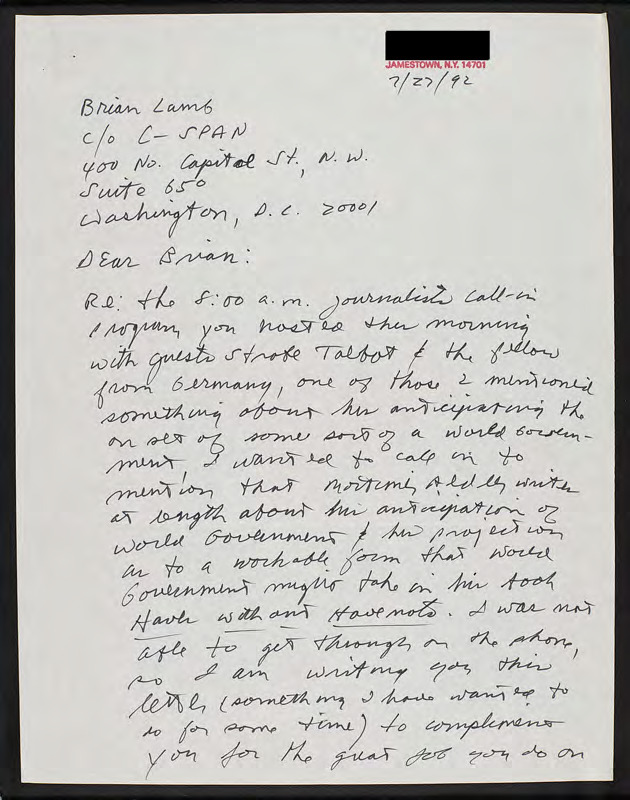 JAMESTOWN, N.Y. 14701
7/27/92
Brian Lamb
c/o C-SPAN
400 No. Capitol St., N.W.
Suite 650
Washington, D.C. 20001
Dear Brian:
Re: the 8:00 a.m. journalists call-in
program you hosted this morning
with guests Strobe Talbot & the fellow
from Germany, one of those 2 mentioned
something about his anticipating the
on set of some sort of a world Govern-
ment, I wanted to call in to
mention that Mortimer Adler writes
at length about his anticipation of
World Government & his projection
as to a workable form that World
Government might take in his book
Haves without Havenots. I was not
able to get through on the phone,
so I am writing you this
letter (something I have wanted to
do for some time) to compliment
you for the great job you do on